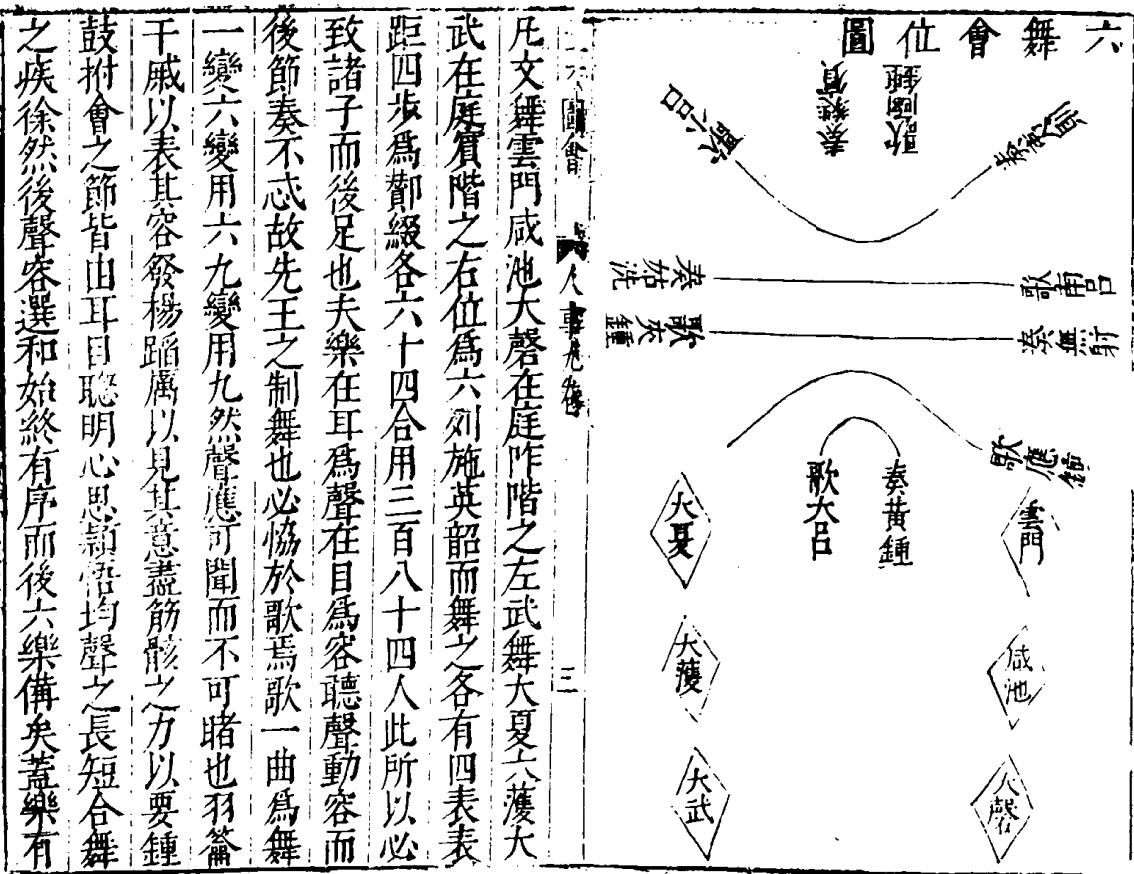 六舞會位圖
歌函鍾
奏蕤賓
歌小呂
奏夷則
歌南呂
奏姑洗
奏無射
歌夾鍾
歌應鍾
奏黃鍾
歌大呂
雲門
咸池
大磬
大夏
大濩
大武
圖會
人事九卷
三
凡文舞雲門咸池大磬在庭阼階之左武舞大夏大濩大
武在庭賓階之右位為六列施英韶而舞之各有四表表
距四步為酇綴各六十四合用三百八十四人此所以必
致諸子而後足也夫樂在耳為聲在目為容聽聲動容而
後節奏不忒故先王之制舞也必恊於歌焉歌一曲為舞
一變六變用六九變用九然聲應可聞而不可睹也羽籥
干戚以表其容發楊蹈厲以見其意盡筋骸之力以要鍾
鼓拊會之節皆由耳目聰明心思穎悟均聲之長短合舞
之疾徐然後聲容選和始終有序而後六樂備矣蓋樂有